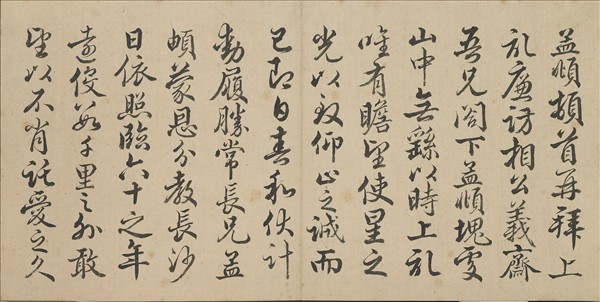 孟頫頓首再拜上
記廉訪相公義齋
吾兄閤下孟頫塊處
山中無繇以時上記
唯有瞻望使星之
光以致仰止之誠而
已即日春和伏計
動履勝常長兄孟
頔蒙恩分教長沙
日依照臨六十之年
遠役數千里之外敢
望以不肖託愛之久